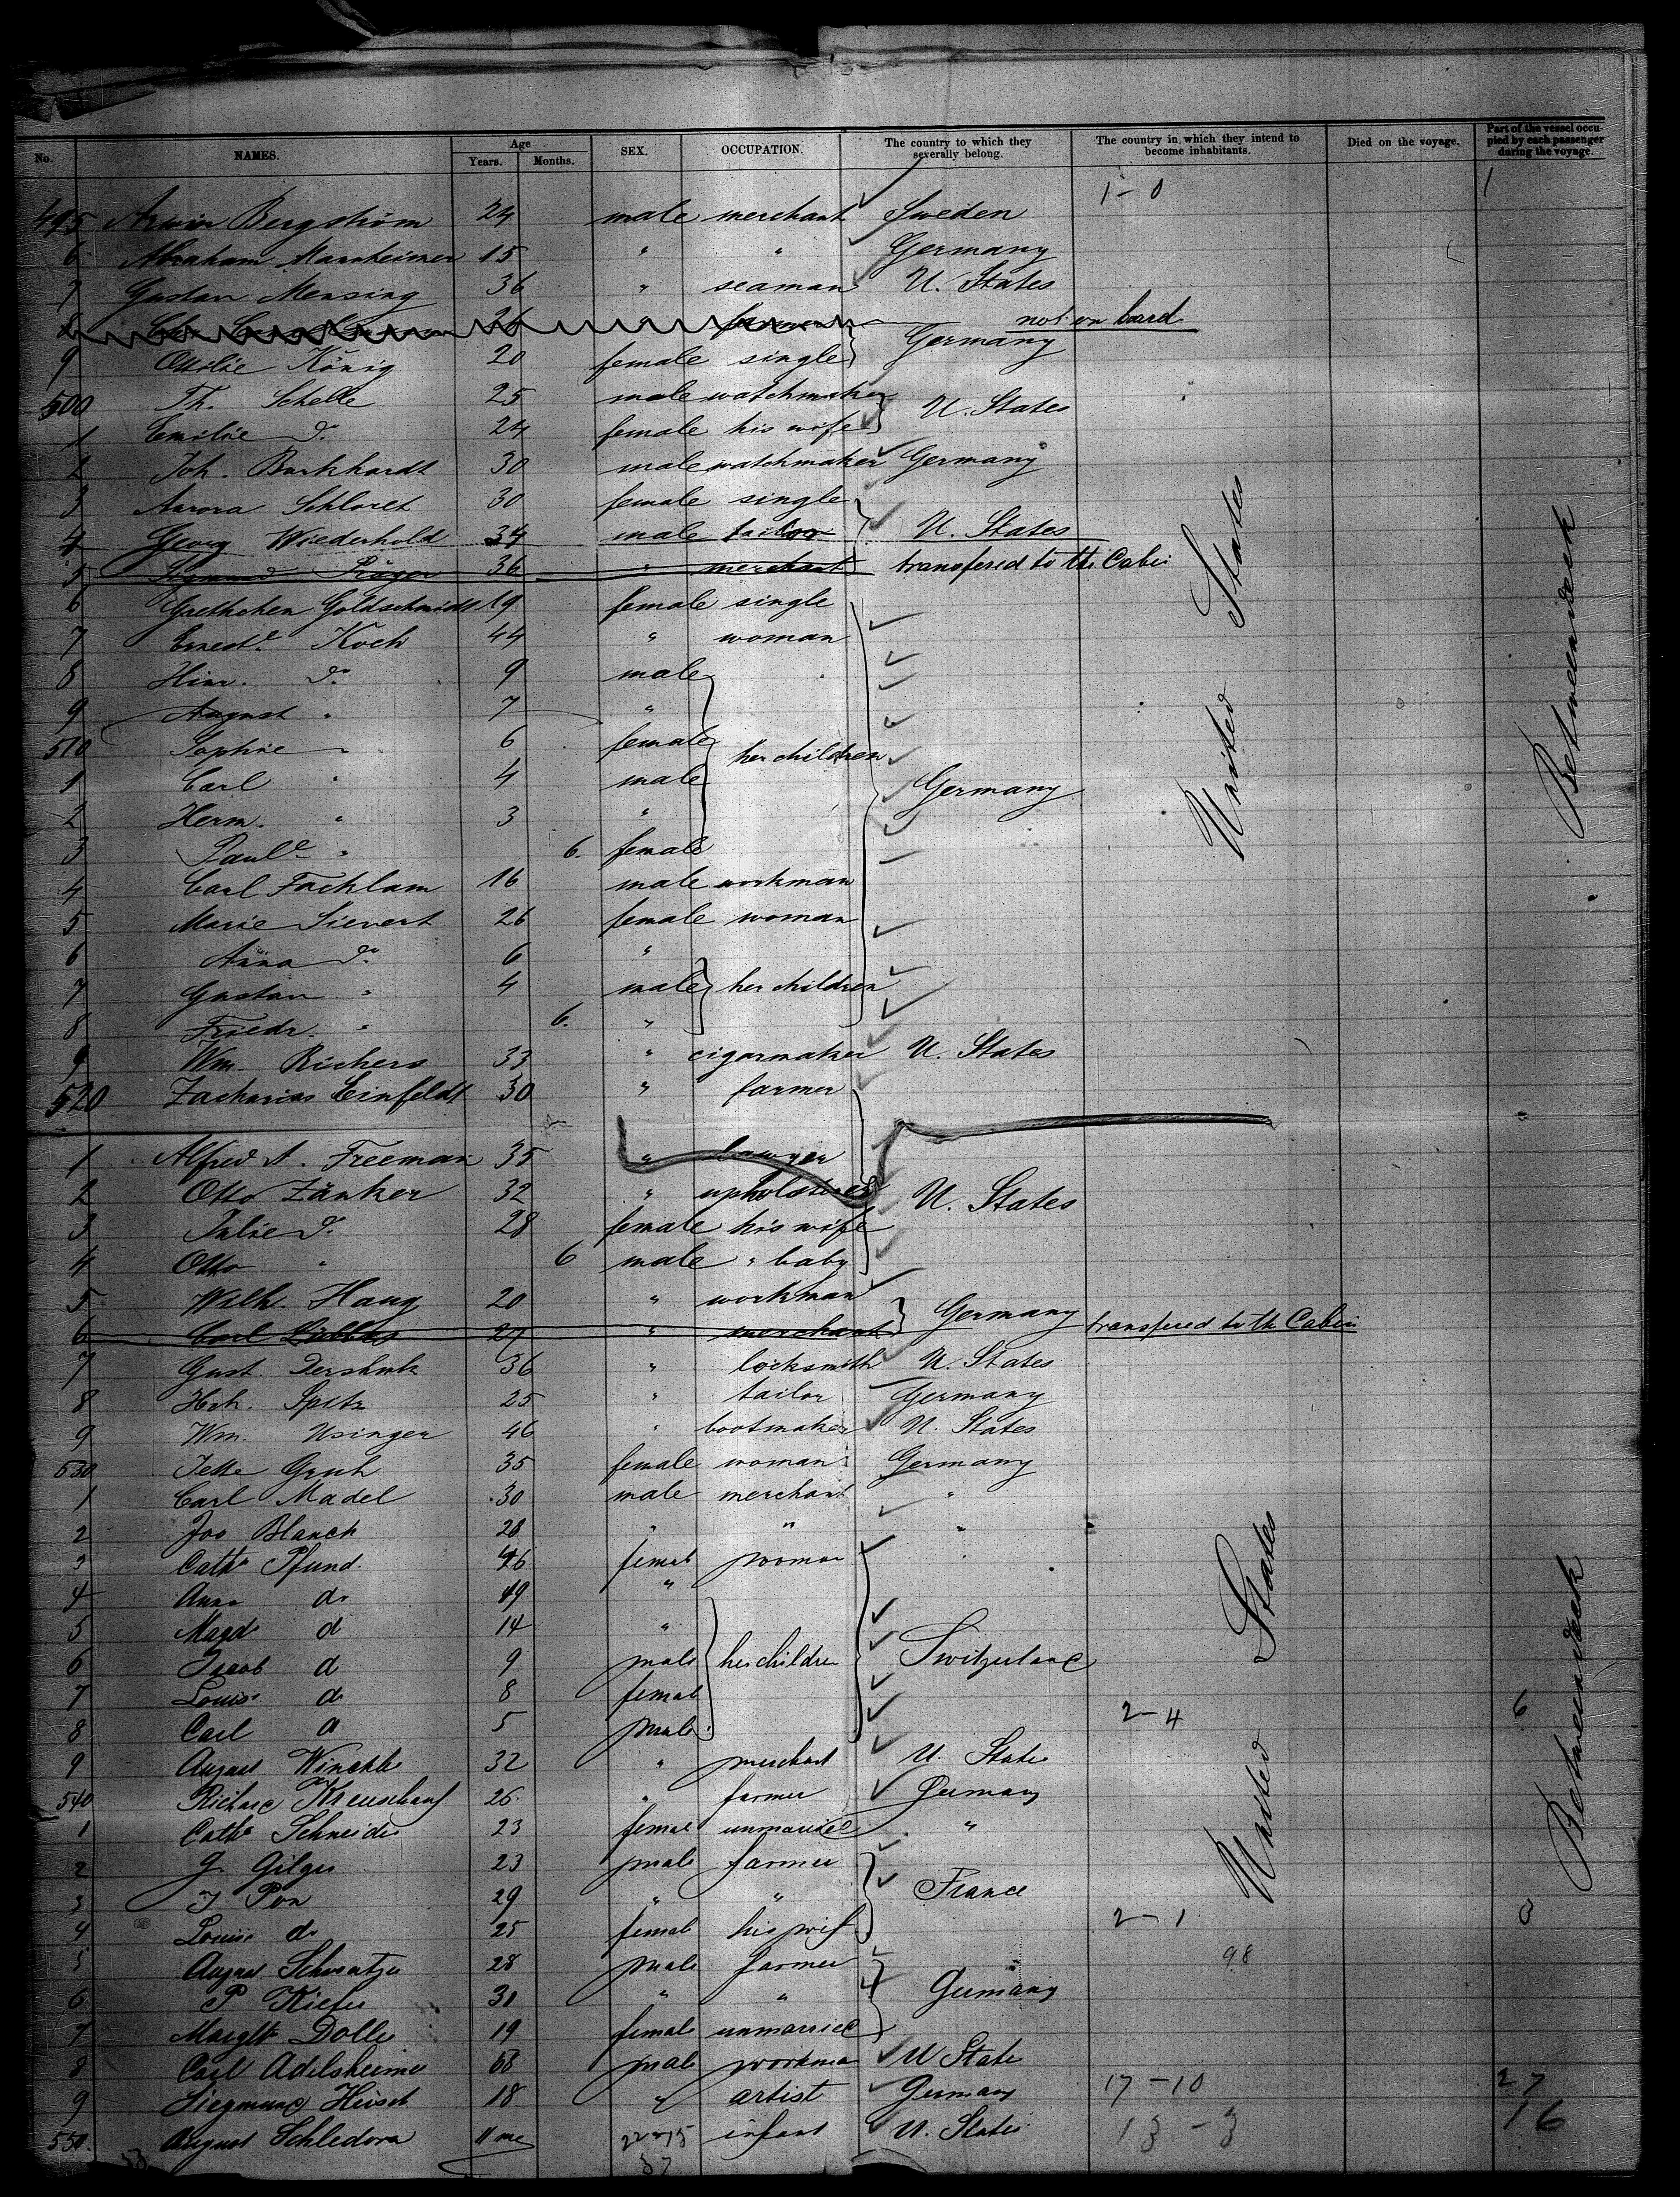 No. NAMES. Age Years. Months. SEX. OCCUPATION. The country to which they severally belong. The country in which they intend to become inhabitants. Died on the voyage. Part of the vessel occupied by each passenger during the voyage.
1-0 1
495 Arwin Bergström 24 male merchant Sweden
6 Abraham Mannheimer 15 " " Germany
7 Gustav Mensing 36 " seaman U. States
8 26 " farmer not on board
9 Ottilie König 20 female single Germany
500 Th. Schelle 25 male watchmaker U. States
1 Emilie do 24 female his wife
2 Joh. Burkhardt 30 male watchmaker Germany
3 Aurora Schloret 30 female single
4 Georg Wiederhold 34 male tailor U. States
5 Sigmund Pröger 36 " merchant transfered to the Cabin
6 Grethchen Goldschmidt 19 female single
7 Ernest.e Koch 44 " woman
8 Hinr. do 9 male
9 August " 7 "
510 Sophie " 6 female her children
1 Carl " 4 male Germany
2 Herm. " 3 "
3 Paul.e " 6. female
4 Carl Facklam 16 male workman
5 Marie Sievert 26 female woman
6 Anna do 6 "
7 Gustav " 4 male her children
8 Friedr. " 6. "
9 Wm. Richers 33 " cigarmaker U. States
520 Zacharias Einfeldt 30 " farmer
1 Alfred A. Freeman 35 " lawyer
2 Otto Zänker 32 " upholsterer U. States
3 Julie do 28 female his wife
4 Otto " 6 male " baby
5 Wilh. Haug 20 " workman Germany
6 Carl Lübbers 27 " merchant transfered to the Cabin
7 Gust. 36 " locksmith U. States
8 Hch. Spitz 25 " tailor Germany
9 Wm. Usinger 46 " bootmaker U. States
530 Jette Gruh 35 female woman Germany
1 Carl Madel 30 male merchant "
2 Jos Blanch 28 " " "
3 Cathe Pfund 46 female woman "
4 Anna do 19 "
5 Magd do 14 "
6 Jacob do 9 male her children Switzerland
7 Louise do 8 female
8 Carl do 5 male 2-4 6
9 August Winckle 32 " merchant U. State
540 Richard Kreuschauf 26 " farmer Germany
1 Cathe Schneider 23 female unmarried "
2 G. Gilger 23 male farmer
3 J Pon 29 " " France
4 Louise do 25 female his wife 2-1 3
5 August Schwentzer 28 male farmer 98
6 P Kiefer 30 " " Germany
7 Margth Doller 19 female unmarried
8 Carl Adelsheimer 68 male workman U State
9 Siegmund Hirsch 18 " artist Germany 17-10 27
550. August Schledorn 11 mo infant U. States 13-3 16
22-75
57
United States
Betweendeck
United States
Betweendeck